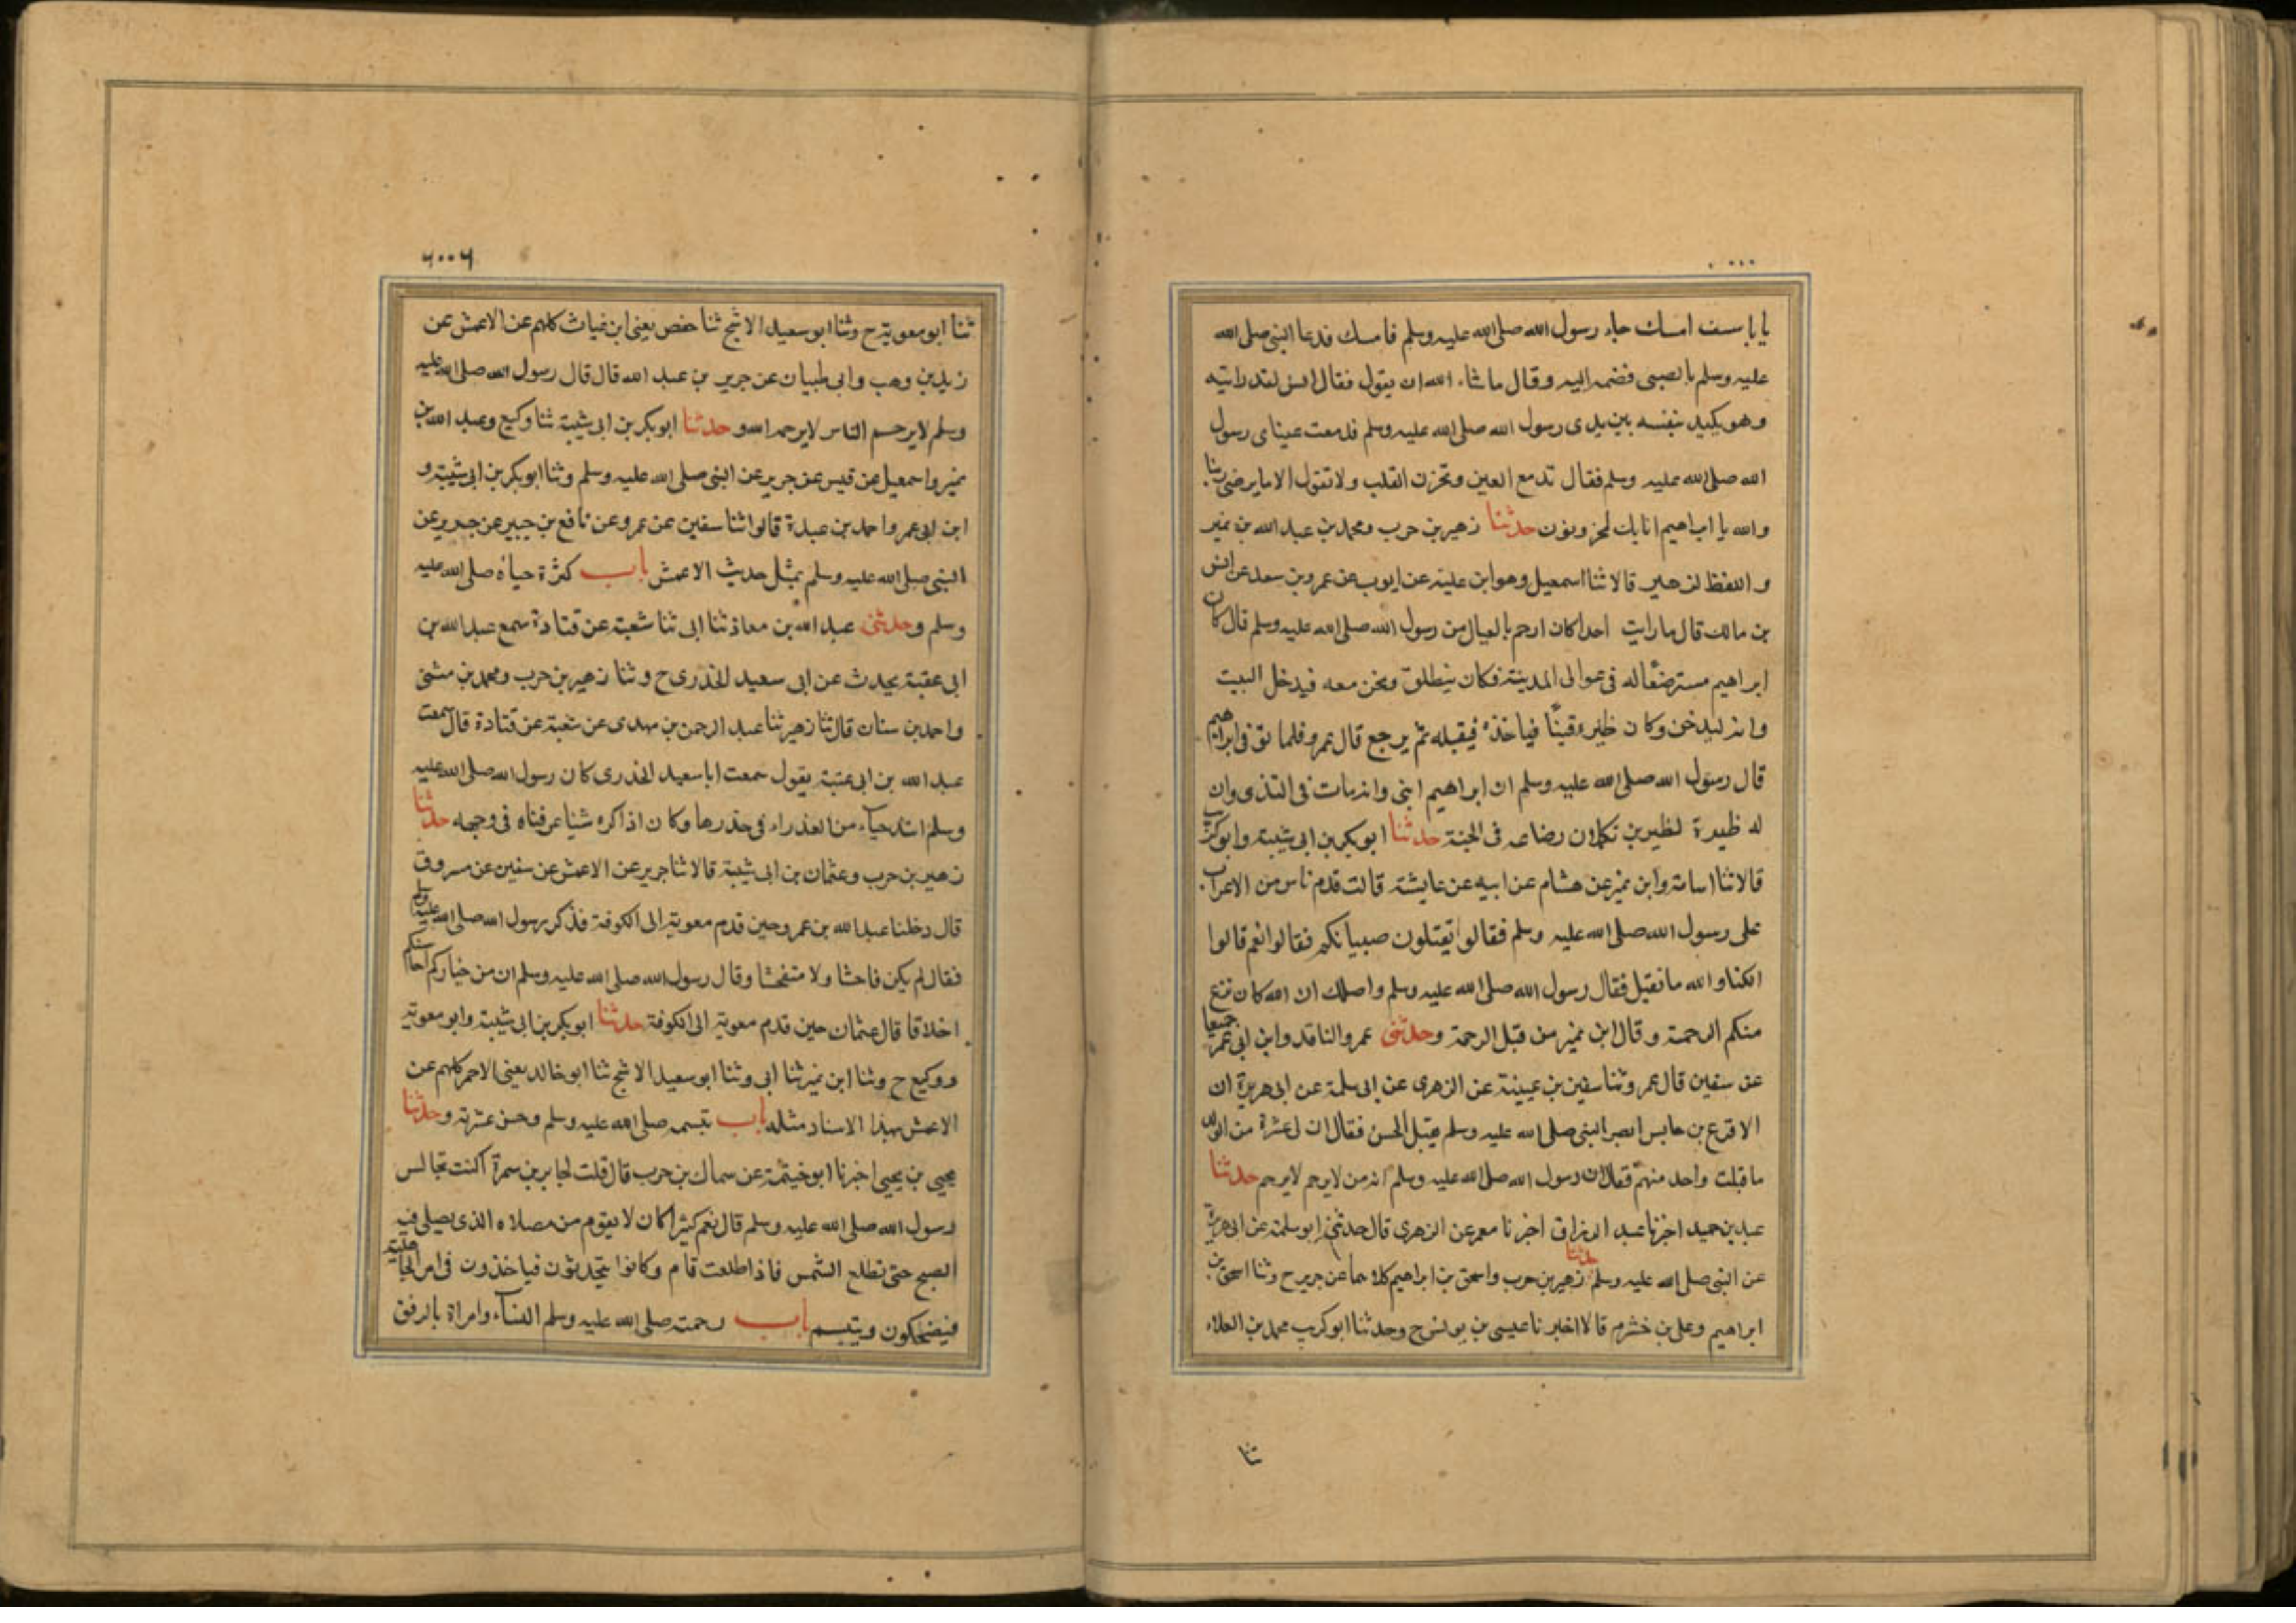 يا با سيف امسك جاء رسول الله صلى الله عليه وسلم فامسك فدعا النبي صلى الله
عليه وسلم بالصبى فضمه اليه وقال ما شاء الله ان يقول فقال انس لقد رايته
وهو يكيد بنفسه بين يدى رسول الله صلى الله عليه وسلم فدمعت عينا رسول
الله صلى الله عليه وسلم فقال تدمع العين وتحزن القلب ولا تقول الا ما يرضى ربنا
والله يا ابراهيم انا بك لمحزونون حدثنا زهير بن حرب ومحمد بن عبد الله بن نمير
واللفظ لزهير قالا ثنا اسمعيل وهو ابن علية عن ايوب عن عمرو بن سعد عن انس
بن مالك قال ما رايت احدا كان ارحم بالعيال من رسول الله صلى الله عليه وسلم قال كان
ابراهيم مسترضعا له فى عوالى المدينة فكان ينطلق ونحن معه فيدخل البيت
وانه ليدخن وكان ظيره قينًا فياخذه فيقبله ثم يرجع قال عمرو فلما توفى ابراهيم
قال رسول الله صلى الله عليه وسلم ان ابراهيم ابنى وانه مات فى الثدى وان
له ظيرة لظيرين تكملان رضاعه فى الجنة حدثنا ابو بكر بن ابى شيبة وابو كريب
قالا ثنا اسامة وابن نمير عن هشام عن ابيه عن عايشة قالت قدم ناس من الاعراب
على رسول الله صلى الله عليه وسلم فقالوا تقبلون صبيانكم فقالوا نعم قالوا
لكنا والله ما نقبل فقال رسول الله صلى الله عليه وسلم واملك ان الله كان نزع
منكم الرحمة وقال ابن نمير من قبل الرحمة وحدثنى عمرو الناقد وابن ابى عمر جميعا
عن سفين قال عمرو ثنا سفين بن عيينة عن الزهرى عن ابى سلمة عن ابى هريرة ان
الاقرع بن حابس ابصر النبى صلى الله عليه وسلم يقبل الحسن فقال ان لى عشرة من الولد
ما قبلت واحد منهم فقال ان رسول الله صلى الله عليه وسلم انه من لا يرحم لا يرحم حدثنا
عبد بن حميد اخبرنا عبد الرزاق اخبرنا معمر عن الزهرى قال حدثنى ابو سلمة عن ابى هريرة
عن النبى صلى الله عليه وسلم حدثنا زهير بن حرب واسحق بن ابراهيم كلاهما عن جرير ح وثنا اسحق بن
ابراهيم وعلى بن خشرم قالا اخبرنا عيسى بن يونس ح وحدثنا ابو كريب محمد بن العلاء
ثنا
٢٠٠٢
ثنا ابو معوية ح وثنا ابو سعيد الاشج ثنا حفص يعنى ابن غياث كلهم عن الاعمش عن
زيد بن وهب وابى ظبيان عن جرير بن عبد الله قال قال رسول الله صلى الله عليه
وسلم لا يرحم الناس لا يرحمه الله وحدثنا ابو بكر بن ابى شيبة ثنا وكيع وعبد الله بن
نمير واسمعيل عن قيس عن جرير عن النبى صلى الله عليه وسلم وثنا ابو بكر بن ابى شيبة و
ابن ابى عمر واحمد بن عبدة قالوا ثنا سفين عن عمرو عن نافع بن جبير عن جرير عن
النبى صلى الله عليه وسلم بمثل حديث الاعمش باب كثرة حياه صلى الله عليه
وسلم وحدثنى عبد الله بن معاذ ثنا ابى ثنا شعبة عن قتادة سمع عبد الله بن
ابى عقبة يحدث عن ابى سعيد الخدرى ح وثنا زهير بن حرب ومحمد بن مثنى
واحمد بن سنان قال ثنا زهير ثنا عبد الرحمن بن مهدى عن شعبة عن قتادة قال سمعت
عبد الله بن ابى عتبة يقول سمعت ابا سعيد الخدرى كان رسول الله صلى الله عليه
وسلم اشد حياء من العذراء فى خدرها وكان اذا كره شيئا عرفناه فى وجهه حدثنا
زهير بن حرب وعثمان بن ابى شيبة قالا ثنا جرير عن الاعمش عن سفين عن مسروق
قال دخلنا عبد الله بن عمرو حين قدم معوية الى الكوفة فذكر رسول الله صلى الله عليه وسلم
فقال لم يكن فاحشا ولا متفحشا وقال رسول الله صلى الله عليه وسلم ان من خياركم احاسنكم
اخلاقا قال عثمان حين قدم معوية الى الكوفة حدثنا ابو بكر بن ابى شيبة وابو معوية
ووكيع ح وثنا ابن نمير ثنا ابى وثنا ابو سعيد الاشج ثنا ابو خالد يعنى الاحمر كلهم عن
الاعمش بهذا الاسناد مثله باب تبسمه صلى الله عليه وسلم وحسن عشرته وحدثنا
يحيى بن يحيى اخبرنا ابو خيثمة عن سماك بن حرب قال قلت لجابر بن سمرة اكنت تجالس
رسول الله صلى الله عليه وسلم قال نعم كثيرا كان لا يقوم من مصلاه الذى يصلى فيه
الصبح حتى تطلع الشمس فاذا طلعت قام وكانوا يتحدثون فياخذون فى امر الجاهلية
فيضحكون ويتبسم باب رحمته صلى الله عليه وسلم النساء وامراة بالرفق